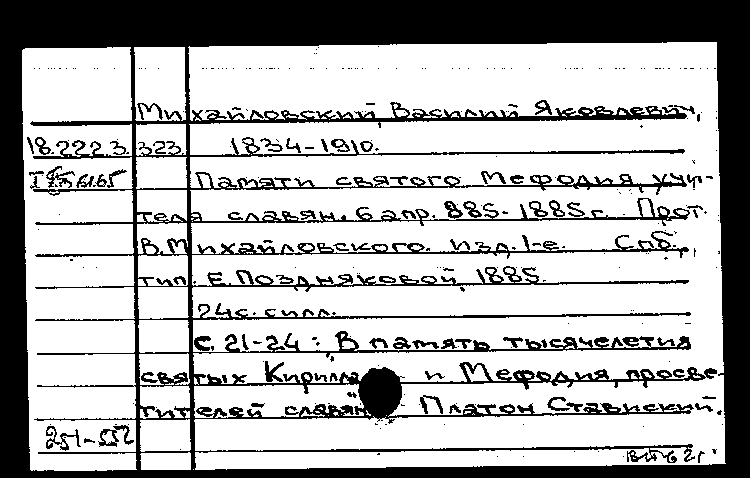 Михайловский, Василий Яковлевич,
18.222.3.323 1834-1910.
Памяти святого Мефодия, учи-
теля славян. 6 апр. 885-1885 г. Прот.
В. Михайловского. Изд. 1-е. Спб.,
тип. Е. Поздняковой, 1885.
24 с. с илл.
С. 21-24: "В память тысячелетия
святых Кирилла и Мефодия, просве-
тителей славян" Платон Ставиский.
251-552